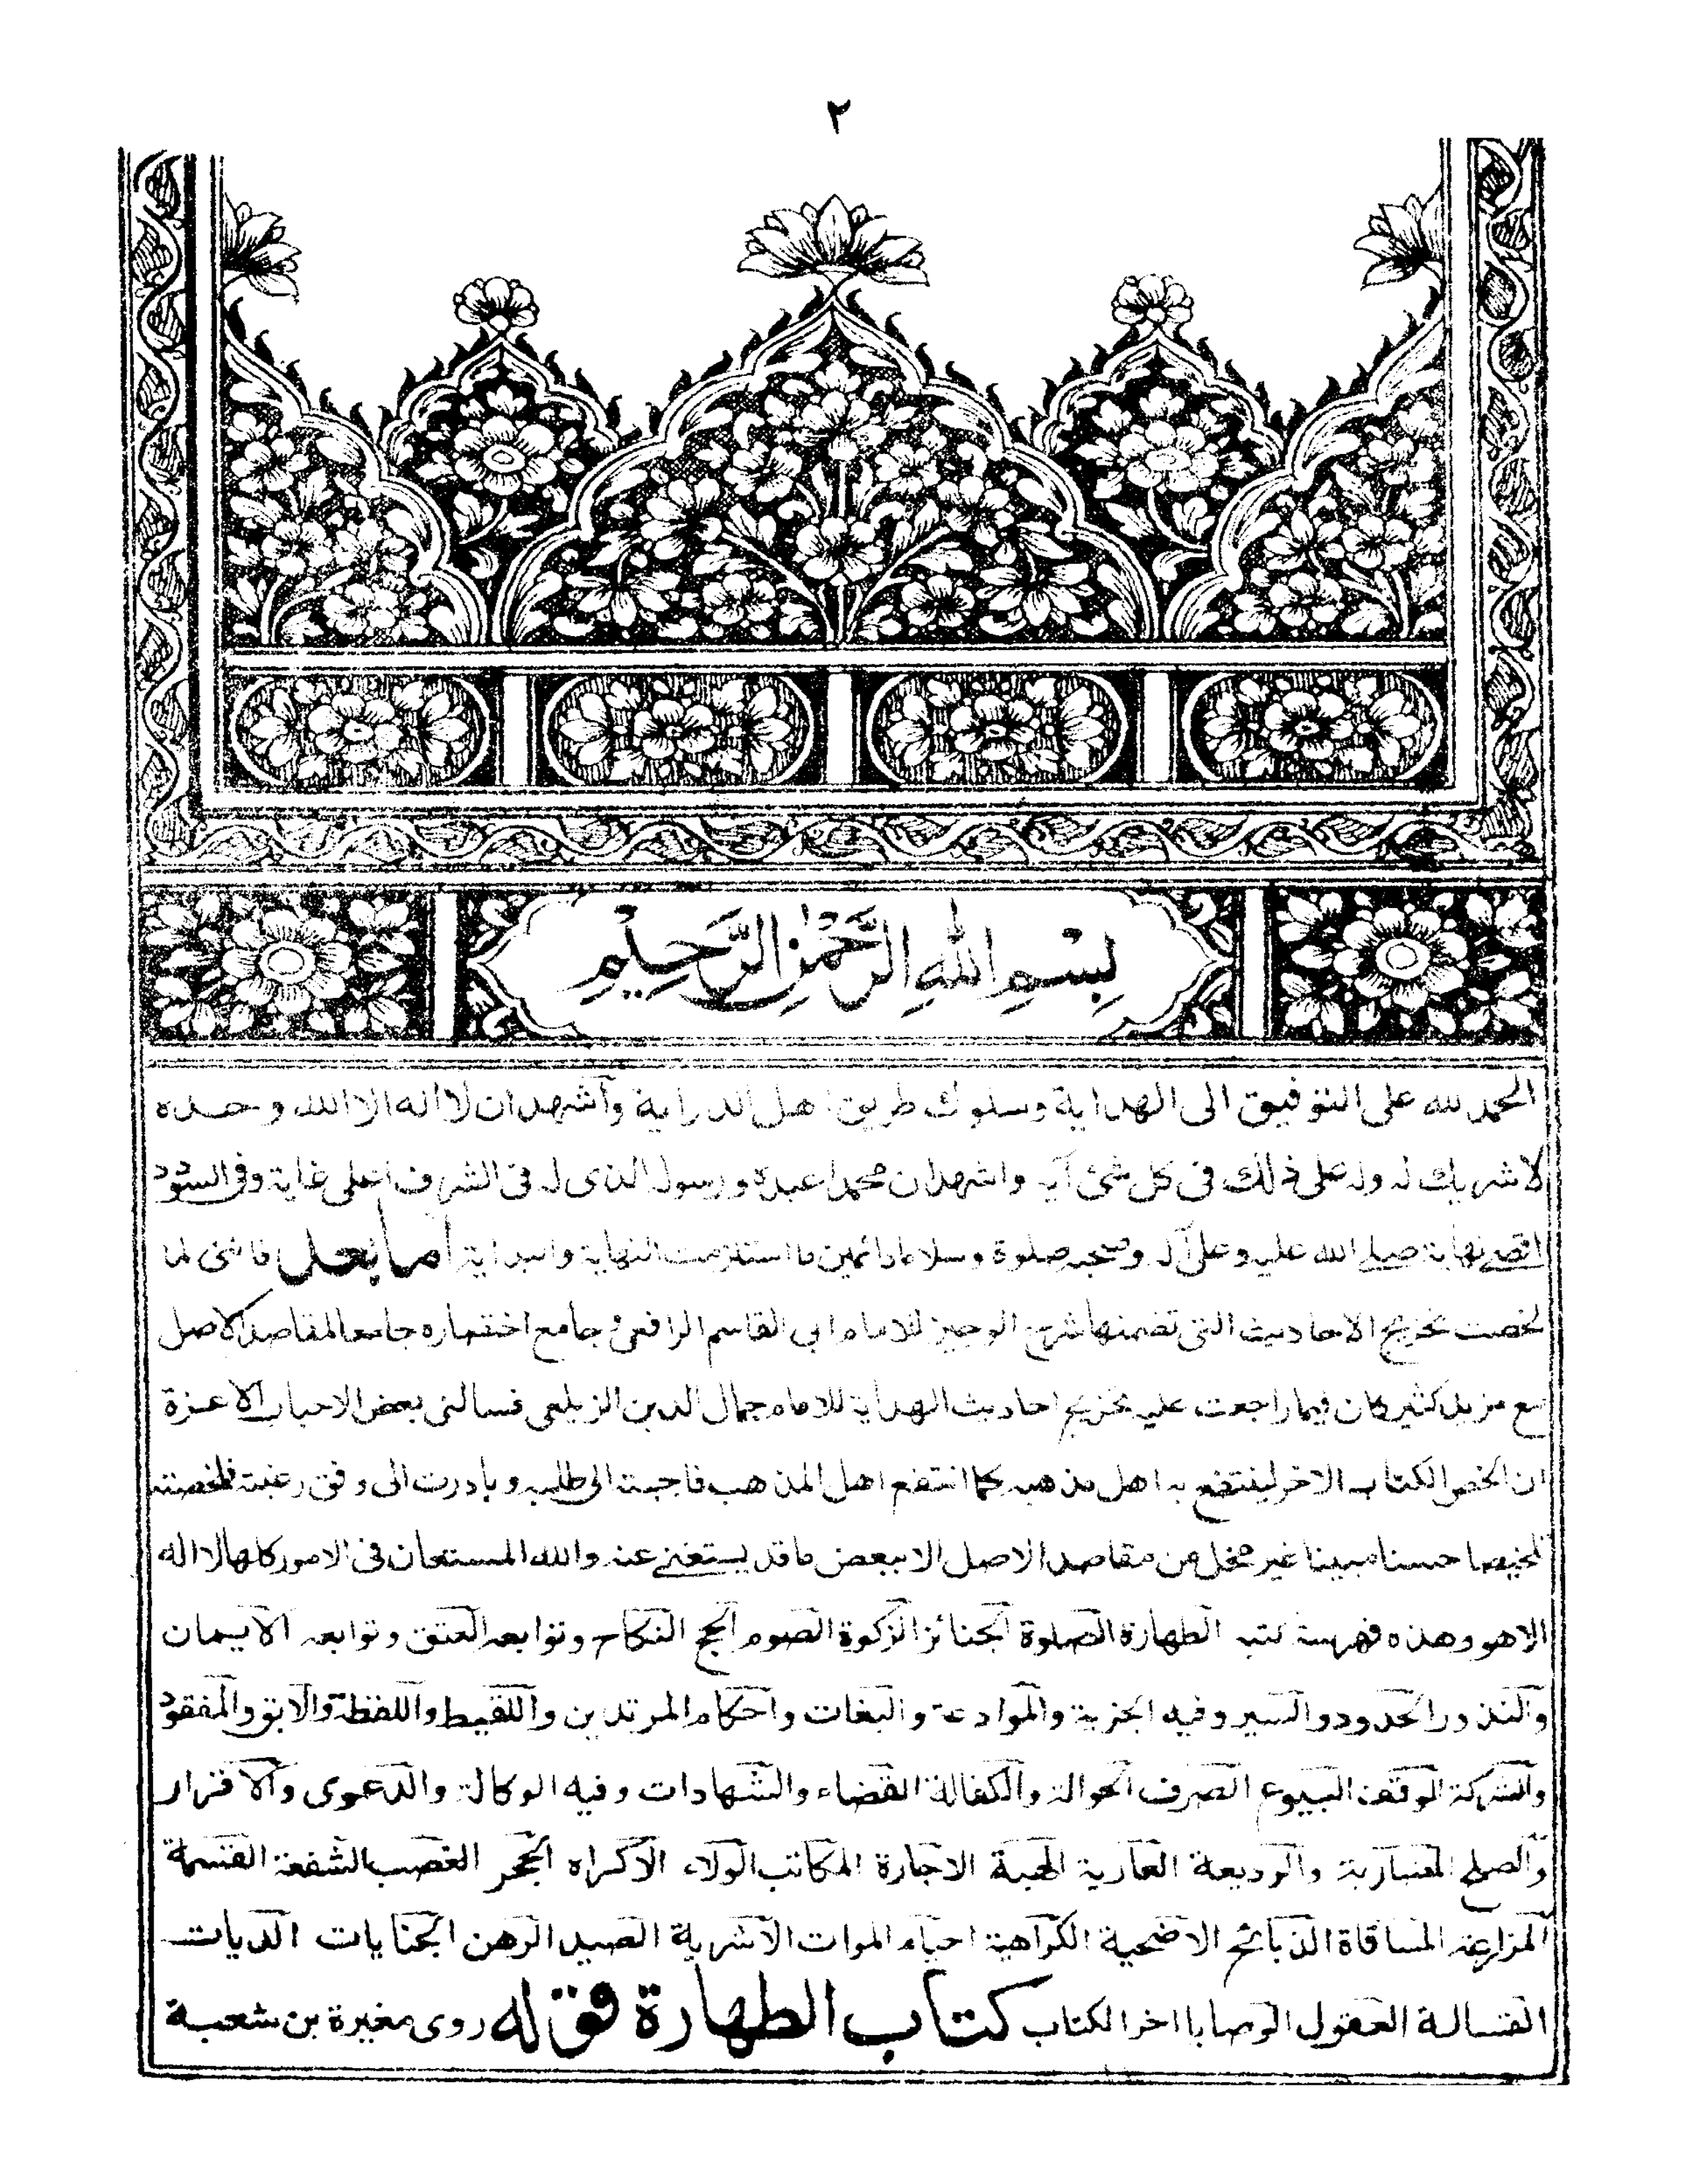 ٢
بِسْمِ اللهِ الرَّحْمٰنِ الرَّحِيْمِ
الحمد لله على التوفيق الى الهداية وسلوك طريق اهل الدراية وآشهد ان لا اله الا الله وحده
لا شريك له وله على ذلك فى كل شئ آية واشهد ان محمدا عبده ورسوله الذى له فى الشرف اعلى غاية وفى السؤدد
اقصے نهاية صلے الله عليه وعلى آله وصحبه صلوة وسلاما دائمين ما استلزمت النهاية والبداية اما بعد فاننى لما
لخصت تخريج الاحاديث التى تضمنها شرح الوجيز للامام ابى القاسم الرافعى وجامع اختصاره جامعا لمقاصد الاصل
مع مزيد كثير كان فيما راجعت عليه تخريج احاديث الهداية للامام جمال الدين الزيلعى فسالنى بعض الاحباب الاعزة
ان الخص الكتاب الاخر لينتفع به اهل مذهبه كما انتفع اهل المذهب فاجبته الى طلبه وبادرت الى وفق رغبته فلخصته
تلخيصا حسنا مبينا غير مخل من مقاصد الاصل الا ببعض ما قد يستغنے عنه والله المستعان فى الامور كلها لا اله
الا هو وهذه فهرسة كتبه الطهارة الصلوة الجنائز الزكوة الصوم الحج النكاح وتوابعه العتق وتوابعه الآيمان
والنذور الحدود والسير وفيه الجزية والموادعة والبغات واحكام المرتدين واللقيط واللقطة والآبق والمفقود
والشركة الوقف البيوع الصرف الحوالة والكفالة القضاء والشهادات وفيه الوكالة والدعوى والاقرار
والصلح المضاربة والوديعة العارية الهبة الاجارة المكاتب الولاء الاكراه الحجر الغصب الشفعة القسمة
المزارعة المساقاة الذبائح الاضحية الكراهية احياء الموات الاشربة الصيد الرهن الجنايات الديات
القسالة العقول الوصايا اخر الكتاب كتاب الطهارة قوله روى مغيرة بن شعبة